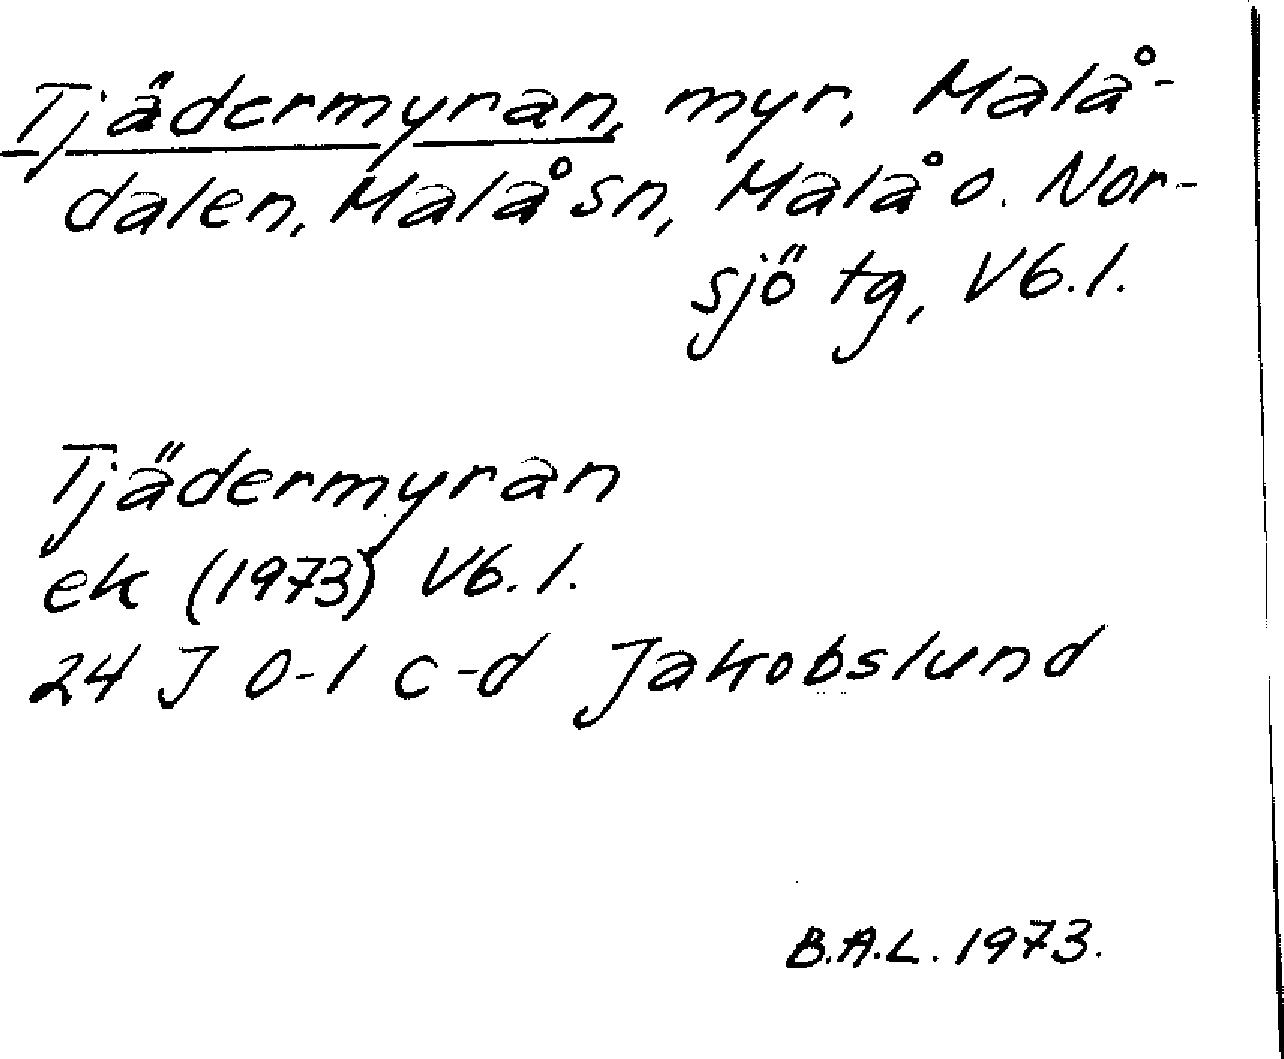 Tjädermyran, myr, Malå-
dalen, Malå sn, Malå o. Nor-
sjö tg, V6.1.
Tjädermyran
ek (1973) V6.1.
24 J 0-1 c-d Jakobslund
B.A.L. 1973.